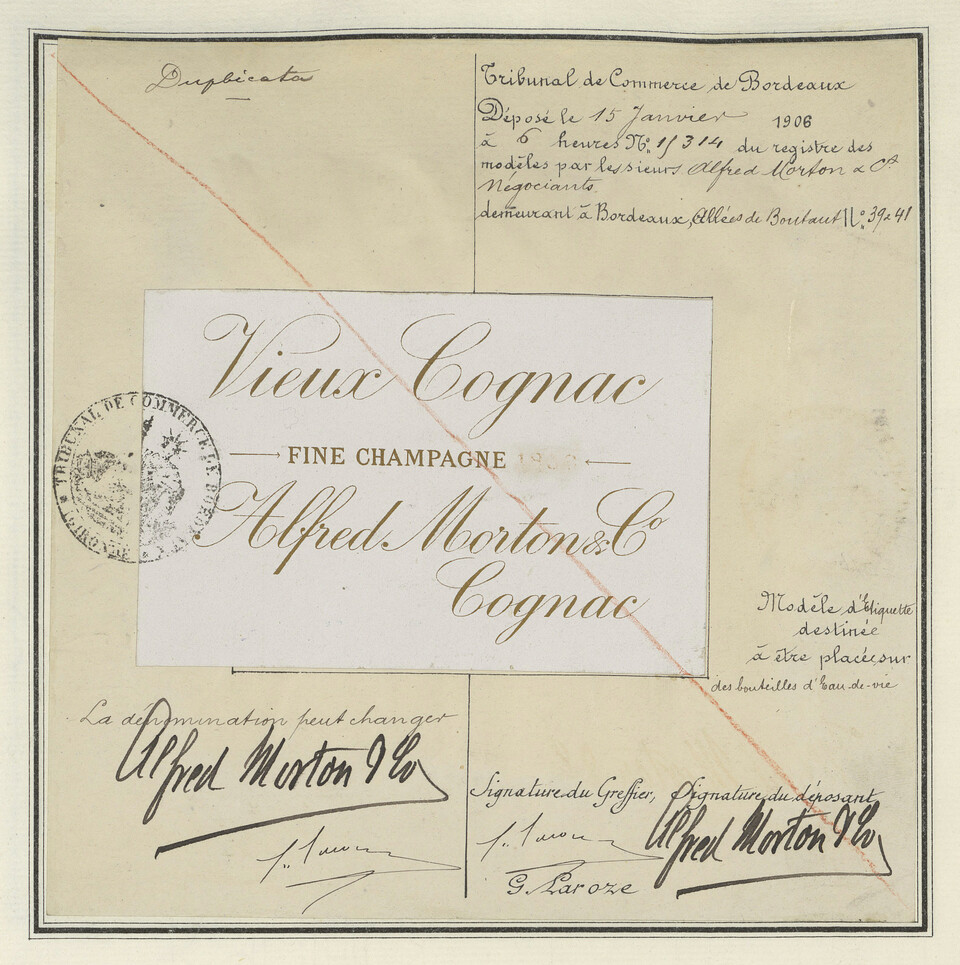 Duplicata
Tribunal de Commerce de Bordeaux
Déposé le 15 Janvier 1906
à 6 heures No. 15314 du registre des
modèles par les sieurs Alfred Morton & Cie
Négociants
demeurant à Bordeaux, Allées de Boutaut No. 39 & 41
Vieux Cognac
FINE CHAMPAGNE
Alfred Morton & Co
Cognac
TRIBUNAL DE COMMERCE
GIRONDE
Modèle d'Etiquette
destinée
à être placée sur
des bouteilles d'Eau-de-vie
La dénomination peut changer
Alfred Morton & Co
Signature du Greffier, Signature du déposant
Alfred Morton & Co
G. Laroze